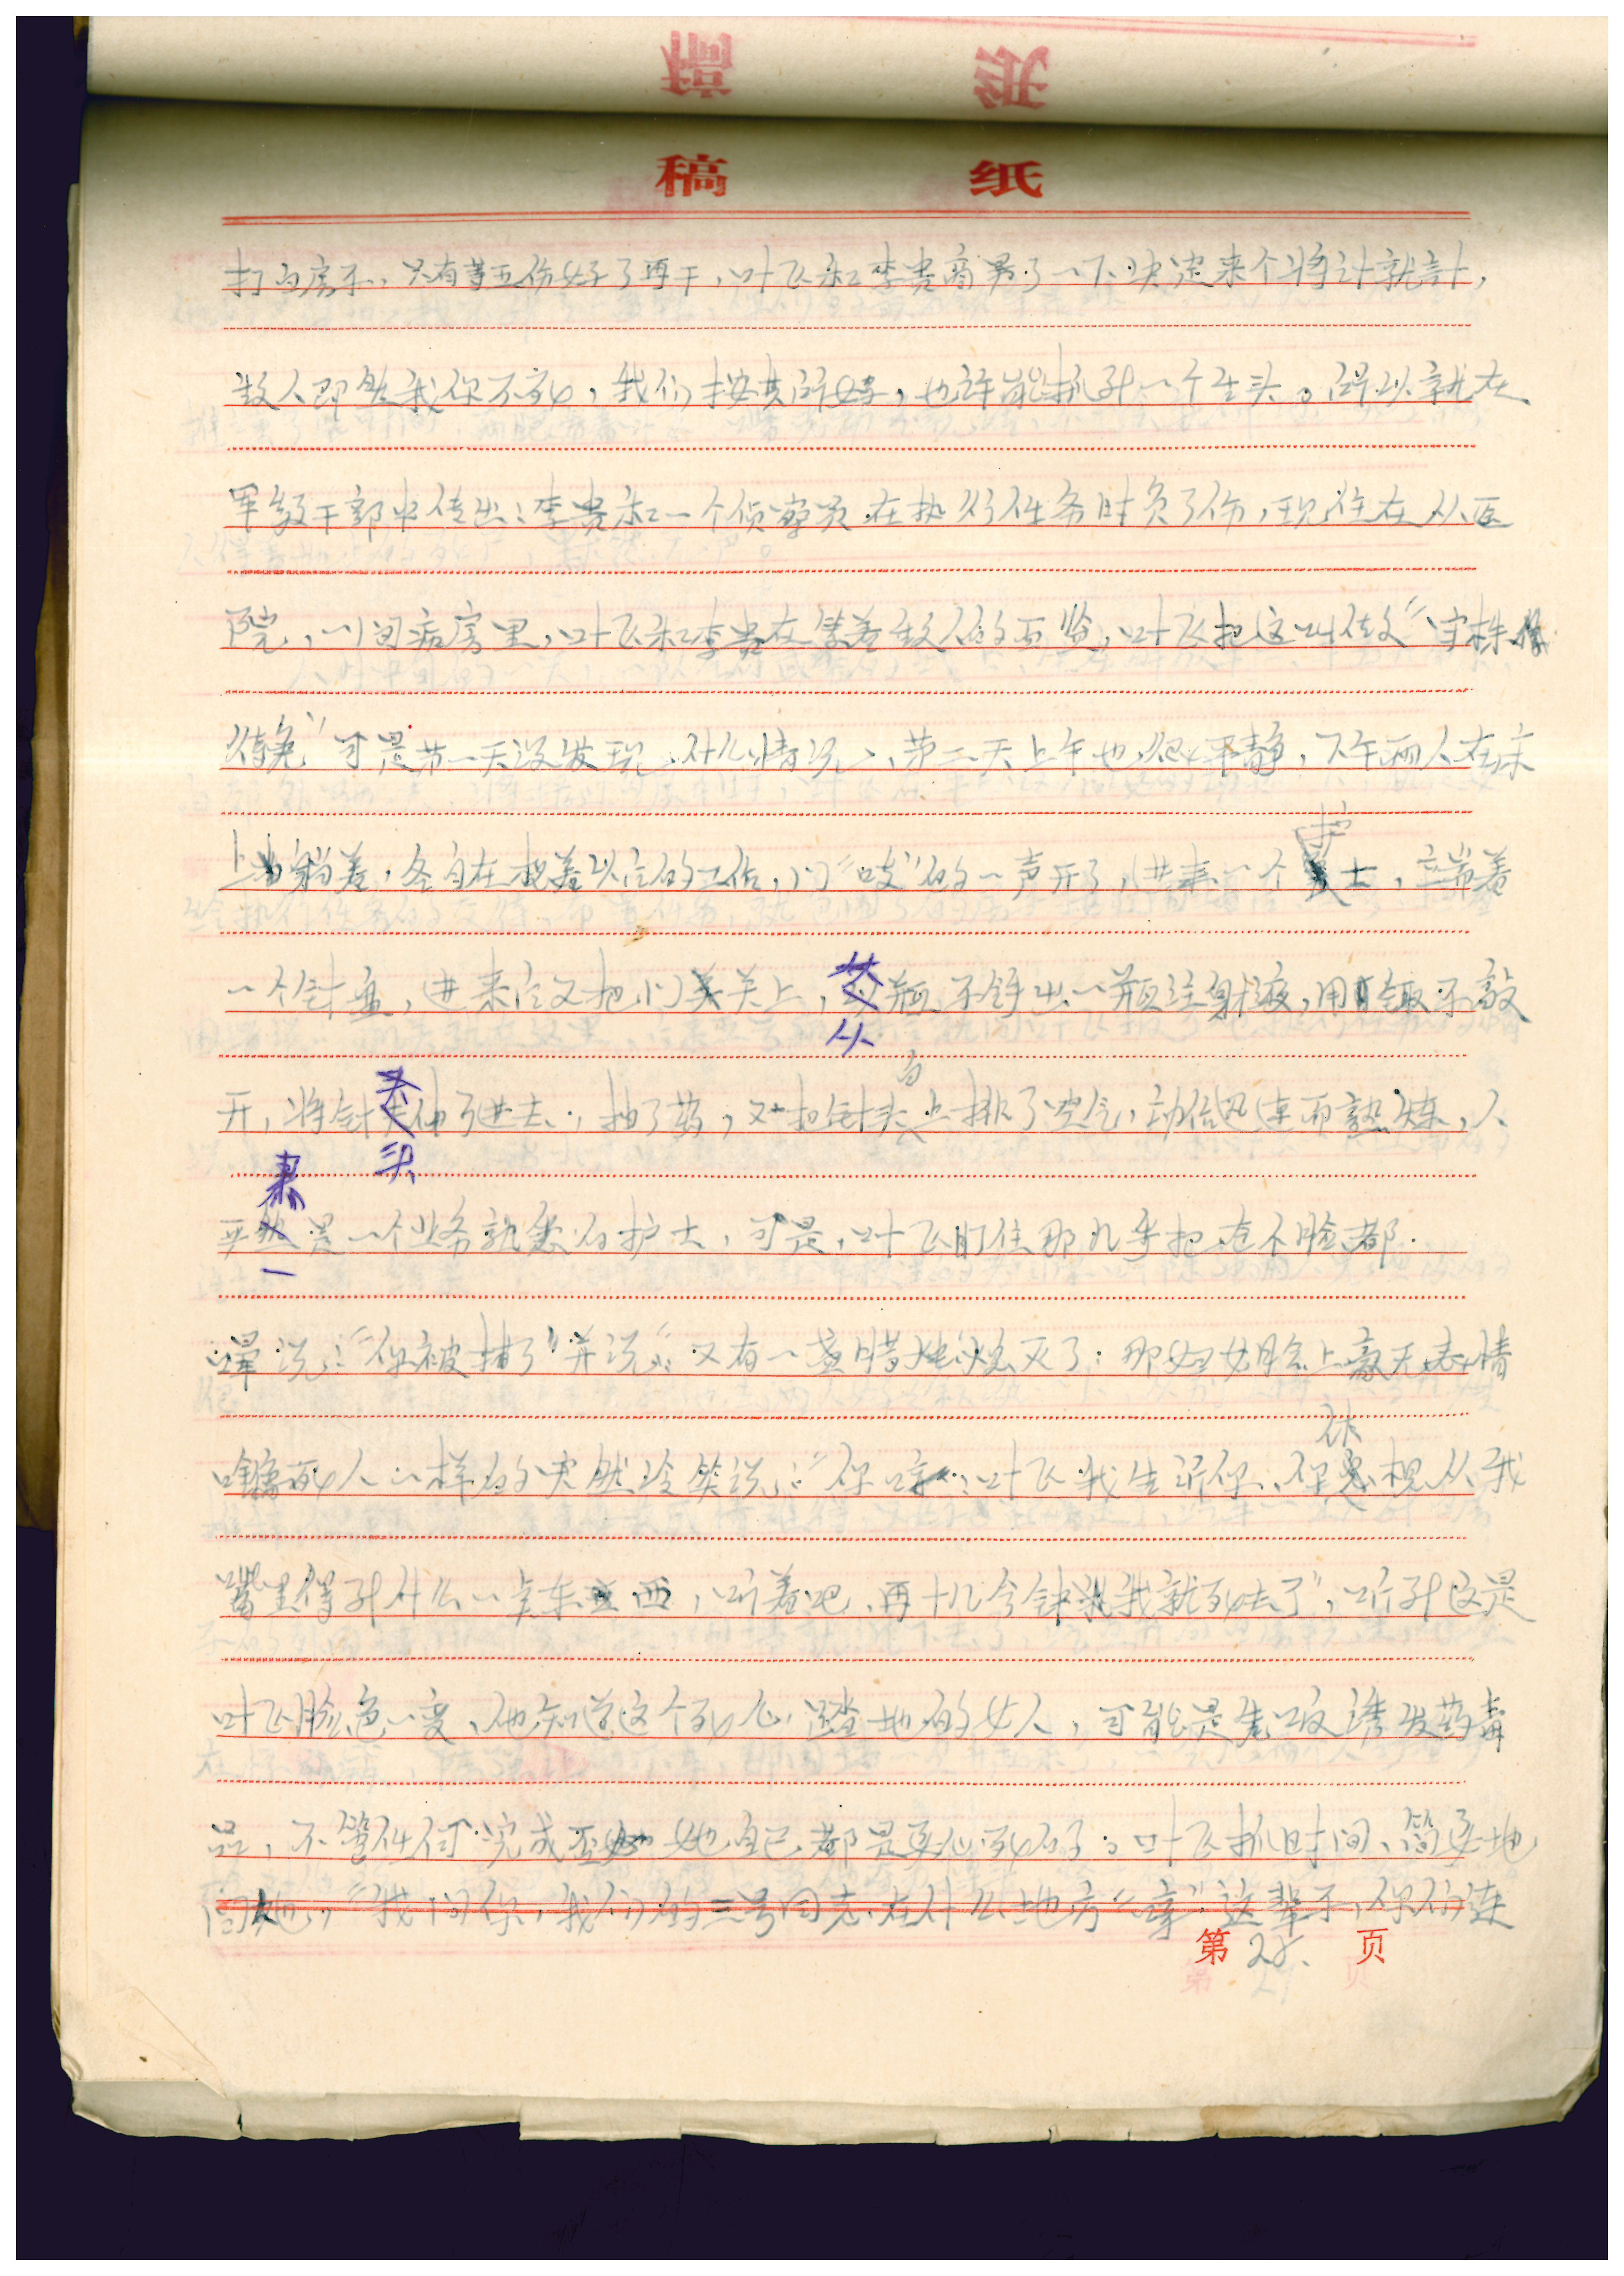 稿 纸
打白房子,只有等五伤好了再干,叶飞和李贵商界了一下决定来个将计就计,
敌人即然我你不死,我们按其所好,也许能抓到一个舌头。所以就在
军级干部中传出:李贵和一个侦察员在执行任务时负了伤,现住在从医
院,一间病房里,叶飞和李贵在等着敌人的百监,叶飞把这叫做“守株
待兔”可是第一天没发现什么情况、第二天上午也很平静,下午两人在床
上躺着,各自在想着以后的工作,门“吱”的一声开了,进来一个护士,端着
一个针盘,进来后又把门关上,从瓶子锌出一瓶注射液,用钳子敲
开,将针头伸了进去,抽了药,又把针头向上排了空气,动作迅速而熟炼,人
乎然是一个业务熟悉的护士,可是,叶飞盯住那几乎把在个脸都
罩 说:“你被捕了”并说:又有一盏腊烛熄灭了:那妇女脸上毫无表情
唯死人一样的突然冷笑说:“你 叶飞我告诉你、你休想从我
嘴里得到什么一点东西,听着吧、再十几分钟我就死去了”,听到这是
叶飞脸色一变、他知道这个死心踏地的女人,可能是先口服诱发药毒
品,不管任何完成否她自己都是要死的了。叶飞抓时间、简要地
问她,“我问你,我们的三号同志在什么地方”“哼”这辈子,你们连
第 28. 页